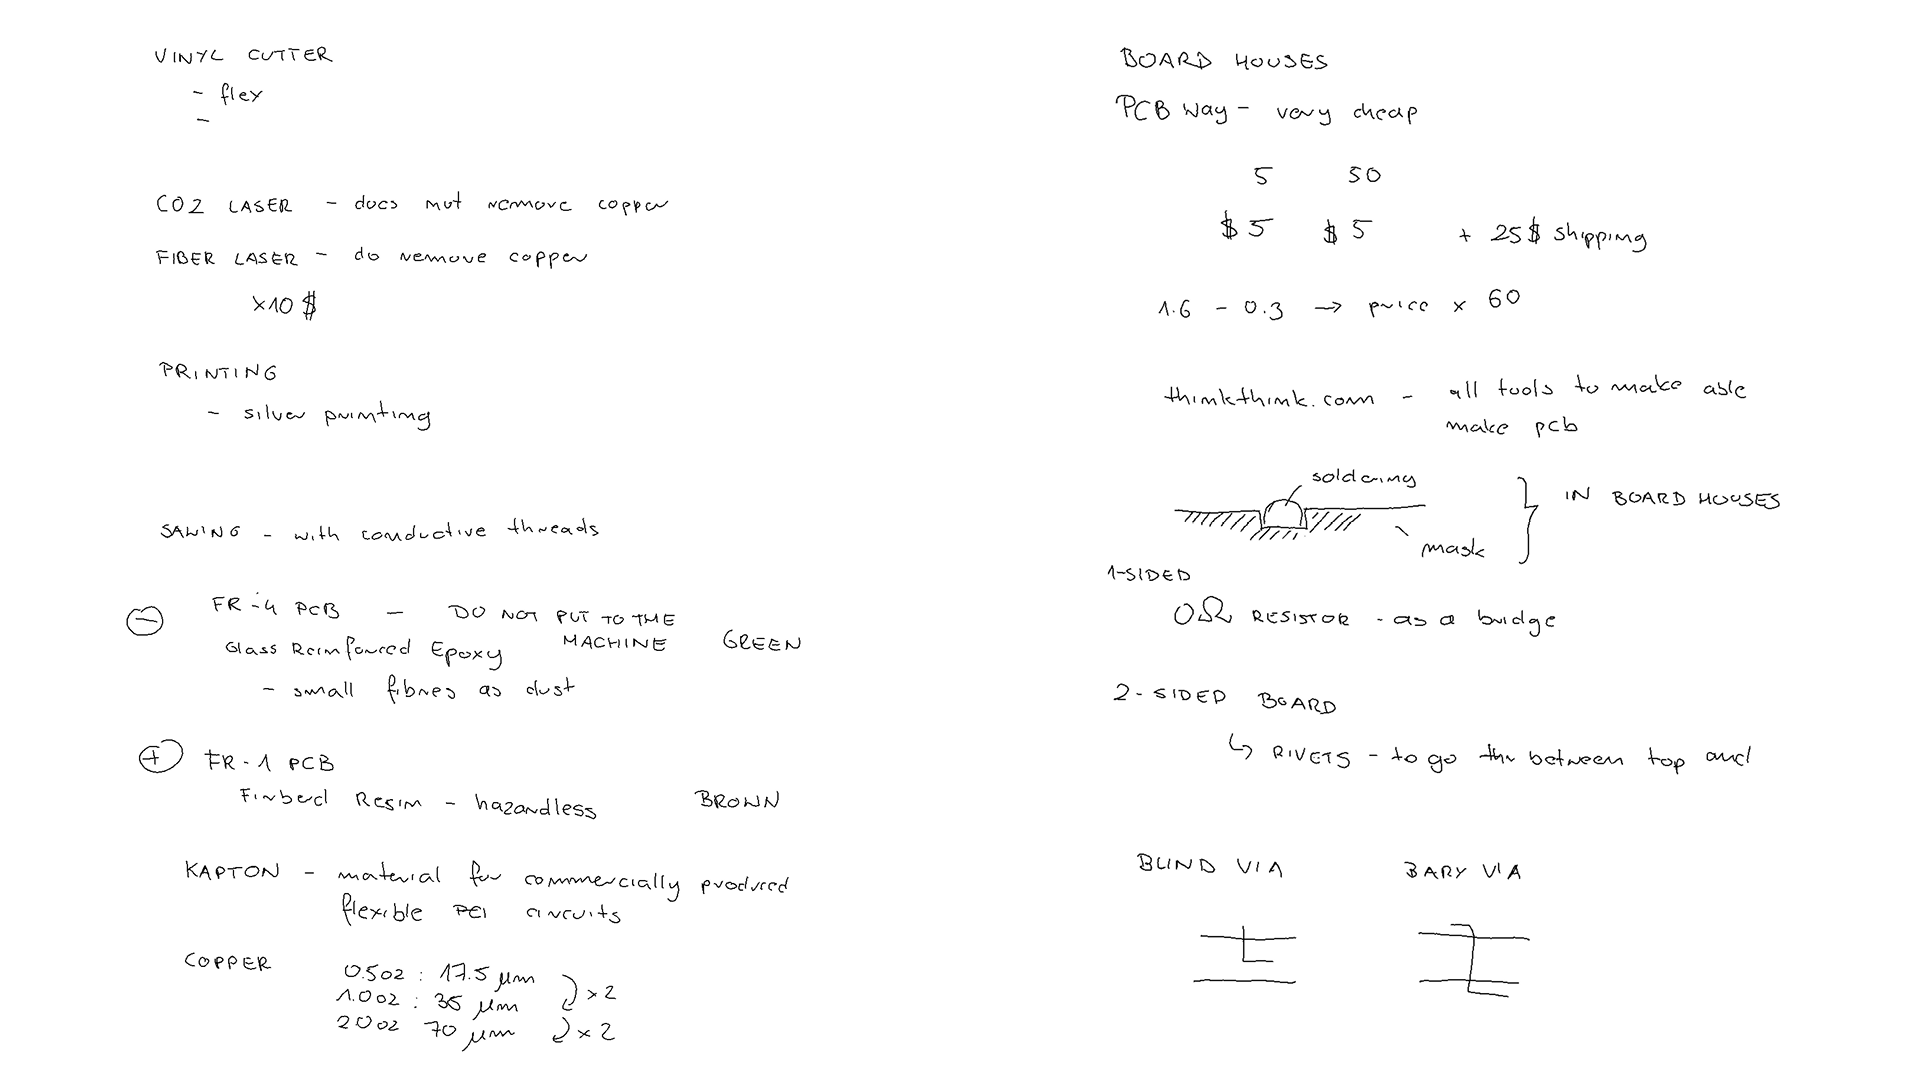 VINYL CUTTER
- flex
-
CO2 LASER - does not remove copper
FIBER LASER - do remove copper
x10 $
PRINTING
- silver printing
SAWING - with conductive threads
⊖ FR-4 PCB - DO NOT PUT TO THE
MACHINE GREEN
Glass Reinforced Epoxy
- small fibres as dust
⊕ FR-1 PCB
Resin - hazardless BROWN
KAPTON - material for commercially produced
flexible circuits
COPPER
0.5oz : 17.5 μm
1.0oz : 35 μm x2
2.0oz 70 μm x2
BOARD HOUSES
PCB Way - very cheap
5 50
$5 $5 + 25$ shipping
1.6 - 0.3 → price x 60
thinkthink.com - all tools to make able
make pcb
soldering
mask
IN BOARD HOUSES
1-SIDED
0Ω RESISTOR - as a bridge
2-SIDED BOARD
↳ RIVETS - to go thr between top and
BLIND VIA BARY VIA